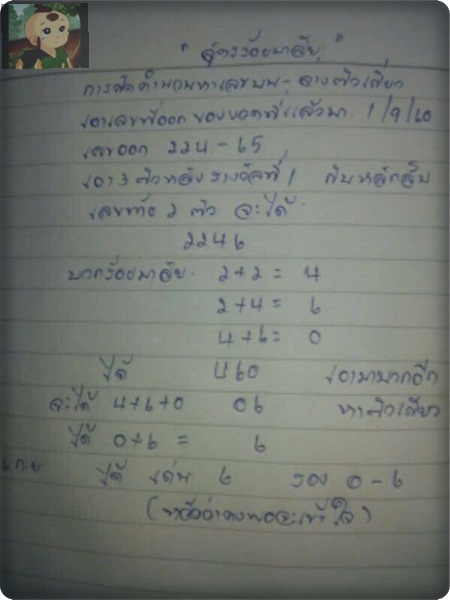 "สูตรร้อยมาลัย"
การคิดคำนวนหาเลขบน-ล่างตัวเดียว
เอาเลขที่ออกของงวดที่แล้วมา 1/9/60
เลขออก 224-65
เอา 3 ตัวหลังรางวัลที่ 1 กับหลักสิบ
เลขท้าย 2 ตัว จะได้
2246
บวกร้อยมาลัย 2+2= 4
2+4= 6
4+6= 0
ได้ 460 เอามาบวกอีก
จะได้ 4+6+0 06 หาตัวเดียว
ได้ 0+6 = 6
ได้ เด่น 6 รอง 0-6
(หวังว่าคงพอจะเข้าใจ)